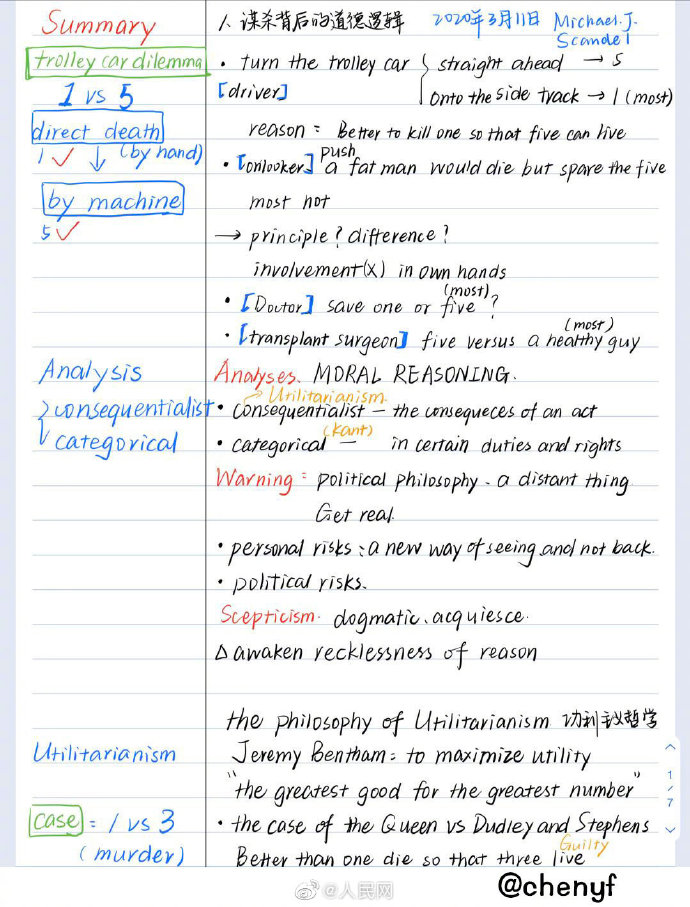 Summary
1. 谋杀背后的道德逻辑 2020年3月11日 Michael.J.
Scandel
trolley car dilemma
• turn the trolley car { straight ahead → 5
1 vs 5
[driver]
onto the side track → 1 (most)
direct death
reason = Better to kill one so that five can live
1 ✓ ↓ (by hand)
push
• [onlooker] a fat man would die but spare the five
by machine
most not
5 ✓
→ principle? difference?
involvement(x) in own hands
(most)
• [Doutor] save one or five ?
(most)
• [transplant surgeon] five versus a healthy guy
Analysis
Analyses. MORAL REASONING.
→ Utilitarianism.
consequentialist
• consequentialist — the consequeces of an act
(Kant)
categorical
• categorical — in certain duties and rights
Warning = political philosophy - a distant thing
Get real.
• personal risks : a new way of seeing and not back.
• political risks.
Scepticism. dogmatic. acquiesce.
△ awaken recklessness of reason
the philosophy of Utilitarianism 功利主义哲学
Utilitarianism
Jeremy Bentham = to maximize utility
"the greatest good for the greatest number"
case = 1 vs 3
• the case of the Queen vs Dudley and Stephens
(murder)
Guilty
Better than one die so that three live
1/7
@人民网
@chenyf